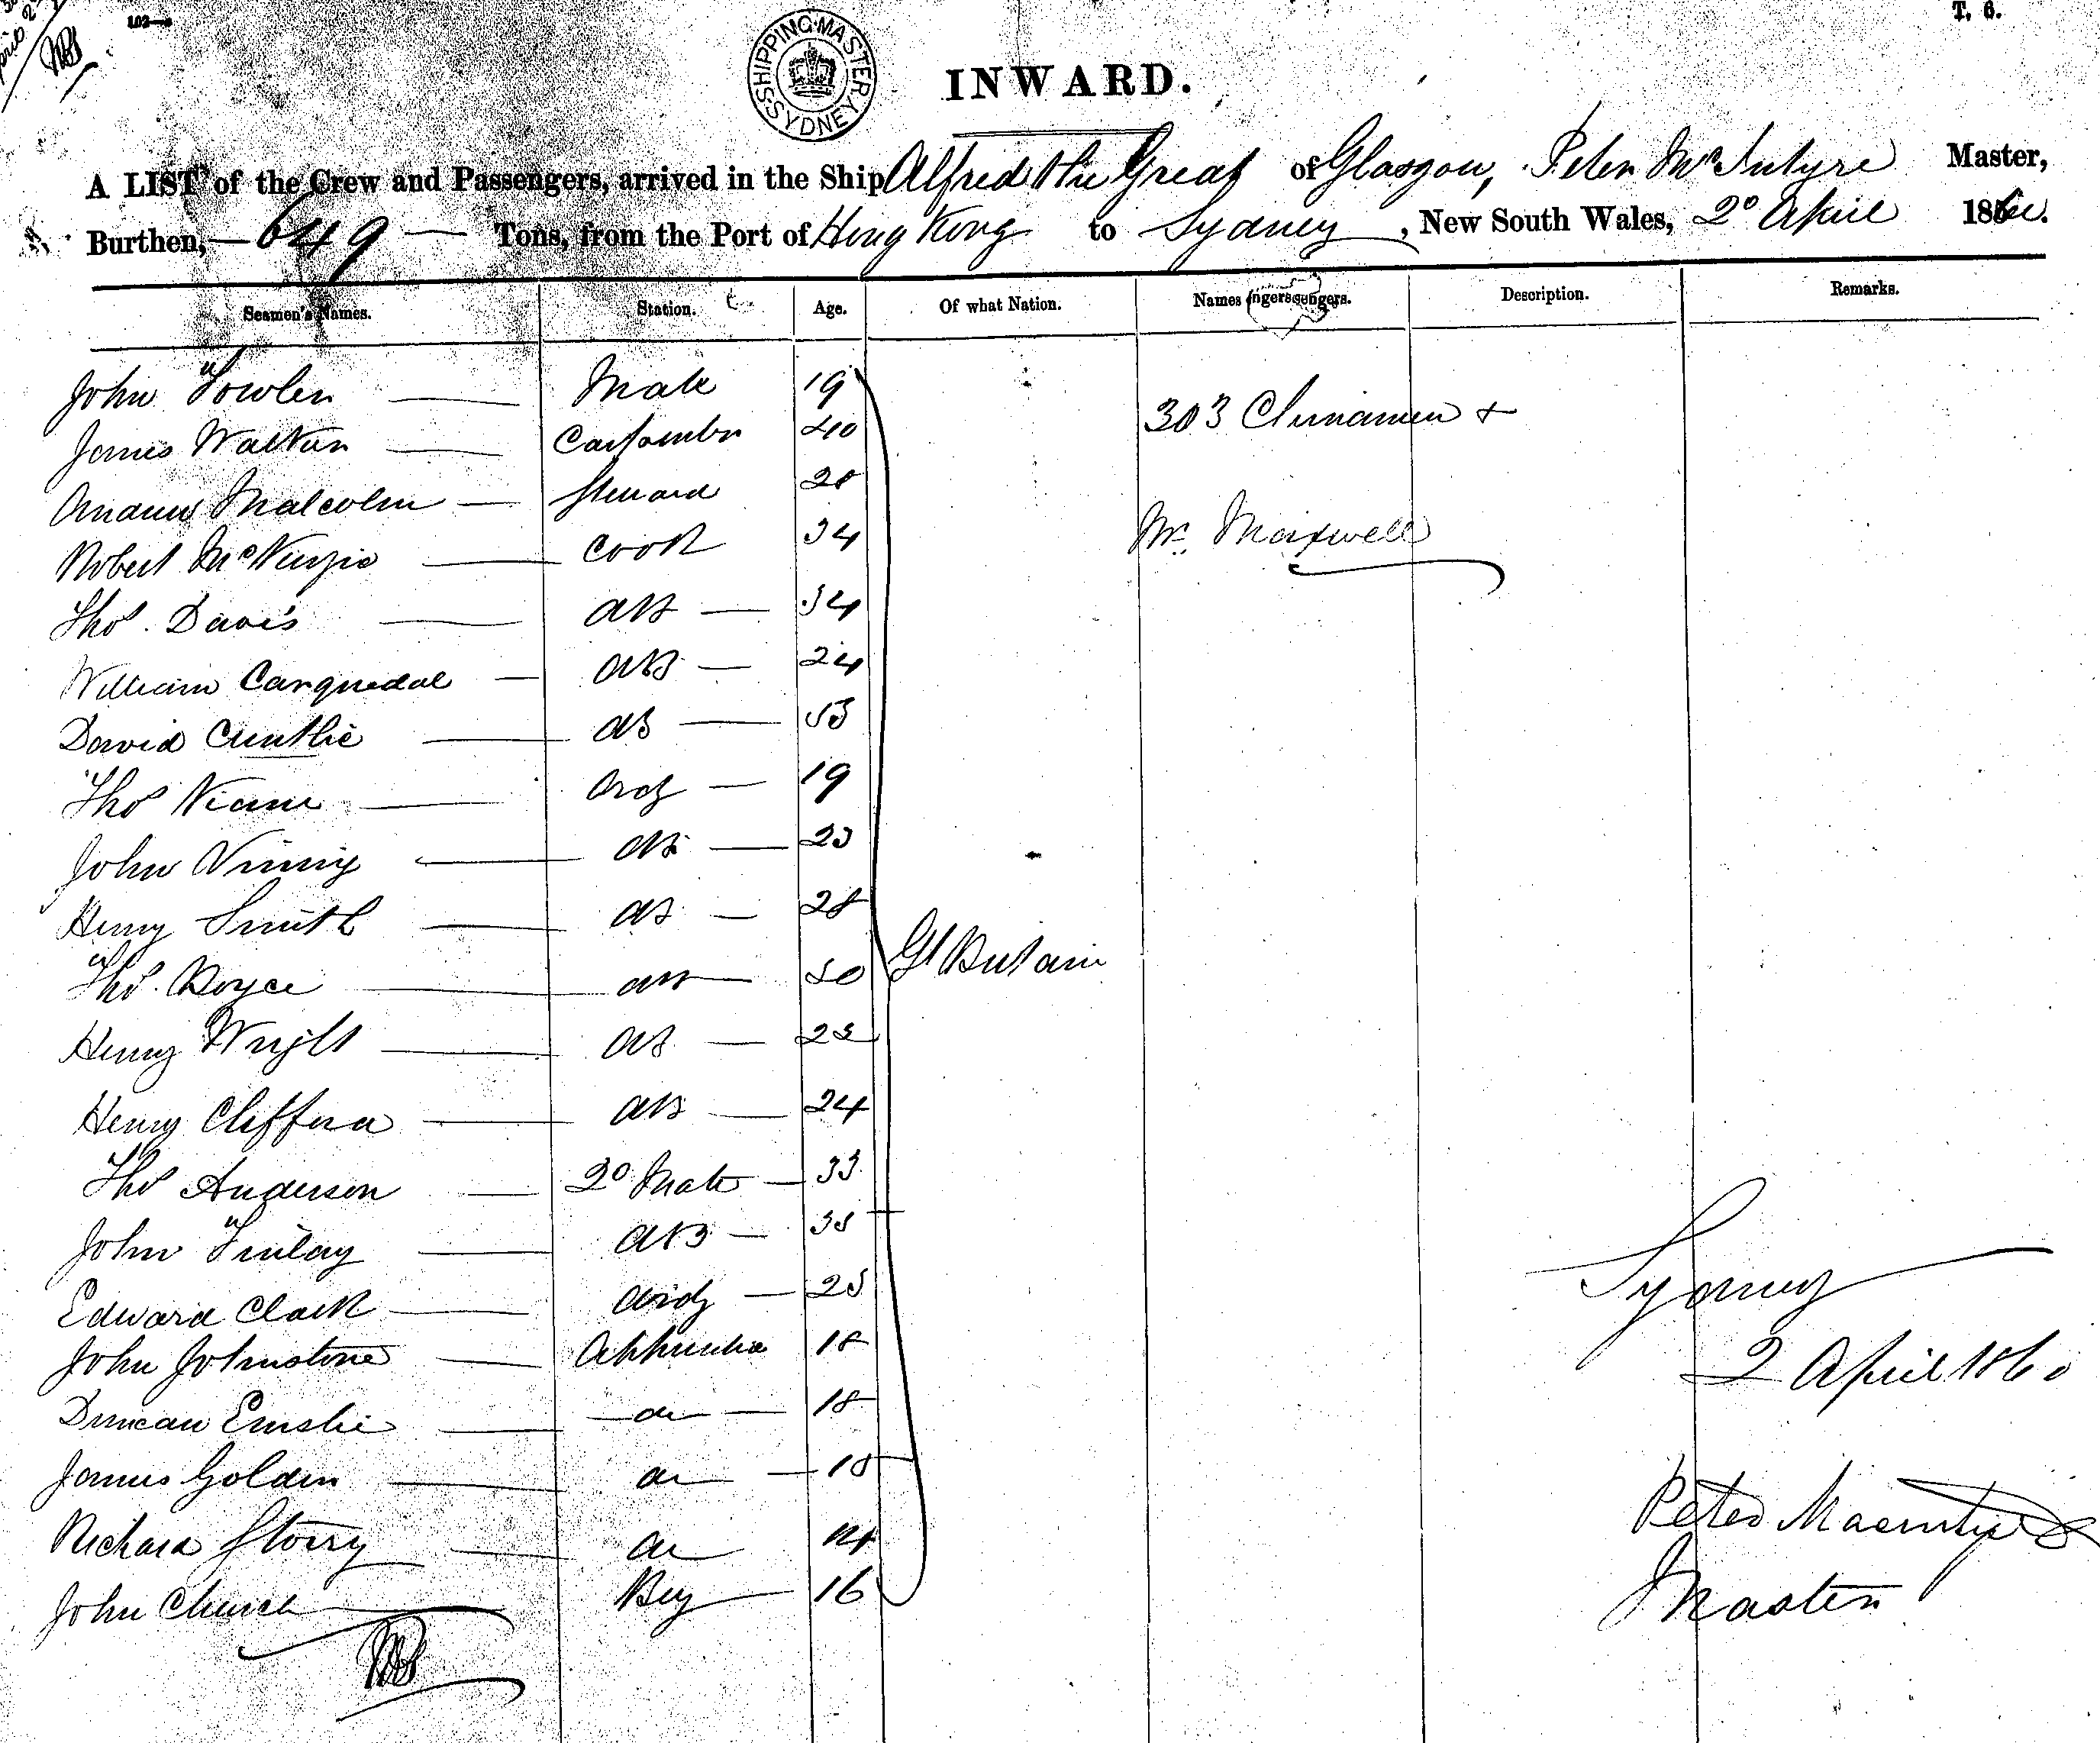 102—
T. 6.
SHIPPING MASTER SYDNEY
INWARD.
A LIST of the Crew and Passengers, arrived in the Ship Alfred the Great of Glasgow, Peter McIntyre Master,
Burthen, — 649 — Tons, from the Port of Hong Kong to Sydney, New South Wales, 2d April 1860.
Seamen's Names. Station. Age. Of what Nation. Names Description. Remarks.
John Fowler — Mate 19 303 Chinamen +
James Walker — Carpenter 40
Andrew Malcolm — Steward 28 Mr. Maxwell
Robert McKenzie — Cook 34
Thos. Davis — AB — 34
William Carquedal — AB — 24
David — AB —
Thos — Ordy — 19
John — AB — 23
Henry Smith — AB — 28
Thos. Boyce — AB — 50 Gt Britain
Henry Wright — AB —
Henry Clifford — AB — 24
Thos Anderson — 2d Mate — 33
John Finlay — AB — 35
Edward Clark — Ordy — 25
John Johnstone — Apprentice 18
Duncan Emslie — do — 18
James Golden — do — 18
Richard Storry — do
John Church — Boy — 16
Sydney
2 April 1860
Peter Macintyre
Master